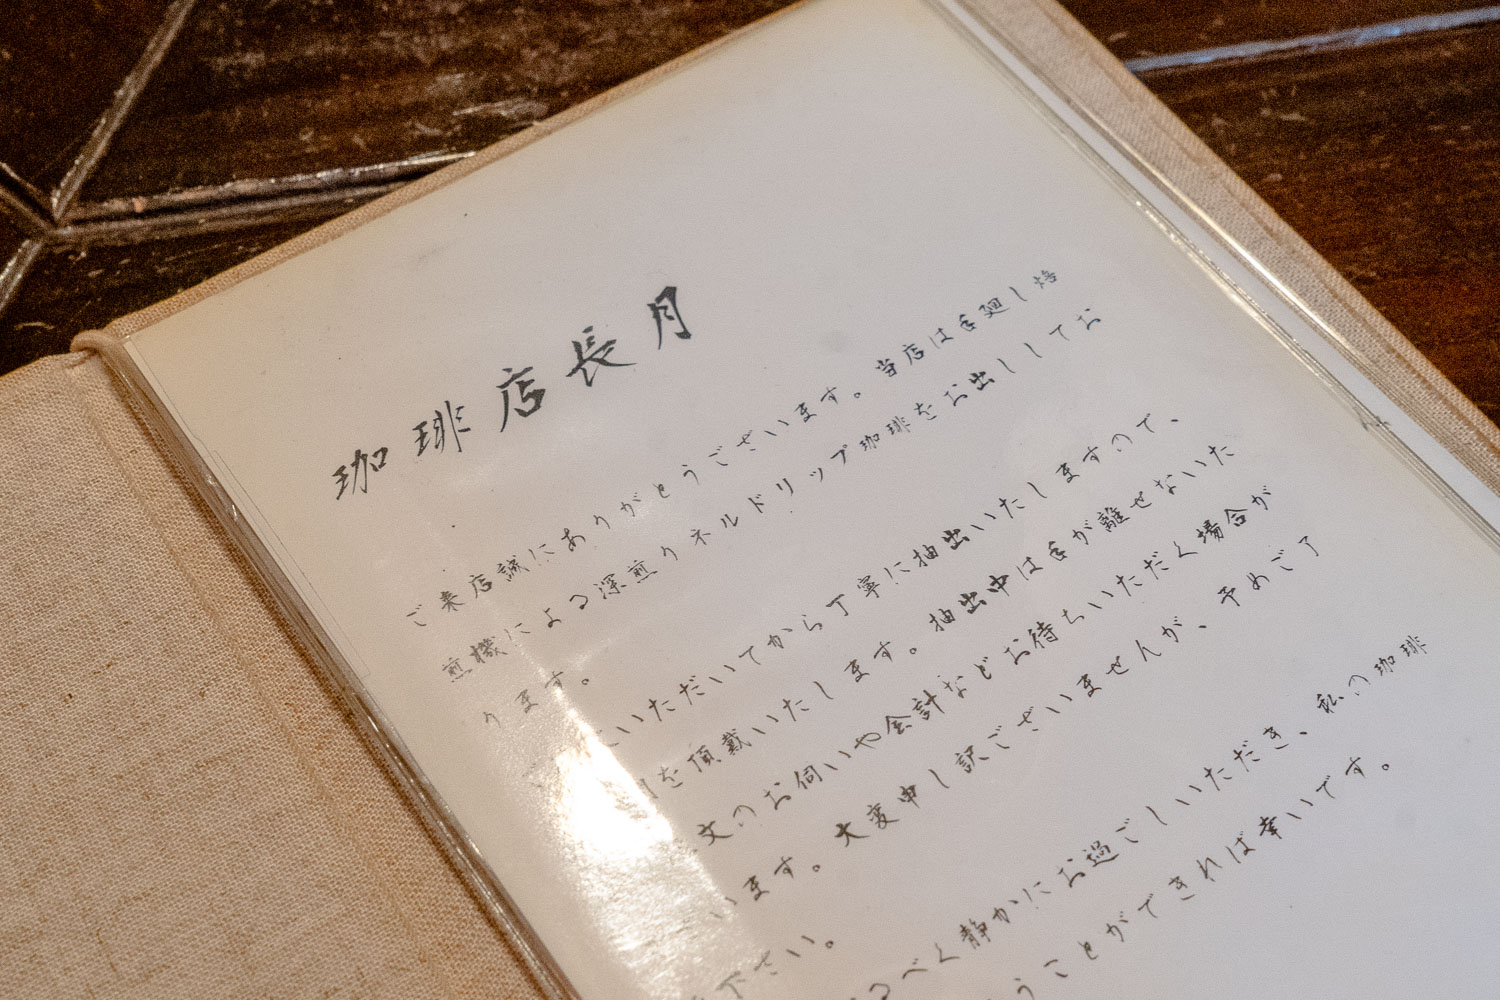 珈琲店長月
ご来店誠にありがとうございます。当店は手廻し焙
煎機による深煎りネルドリップ珈琲をお出ししてお
ります。
いただいてから丁寧に抽出いたしますので、
を頂戴いたします。抽出中は手が離せないた
文のお伺いや会計などお待ちいただく場合が
います。大変申し訳ございませんが、予めご了
下さい。
るべく静かにお過ごしいただき、私の珈琲
うことができれば幸いです。